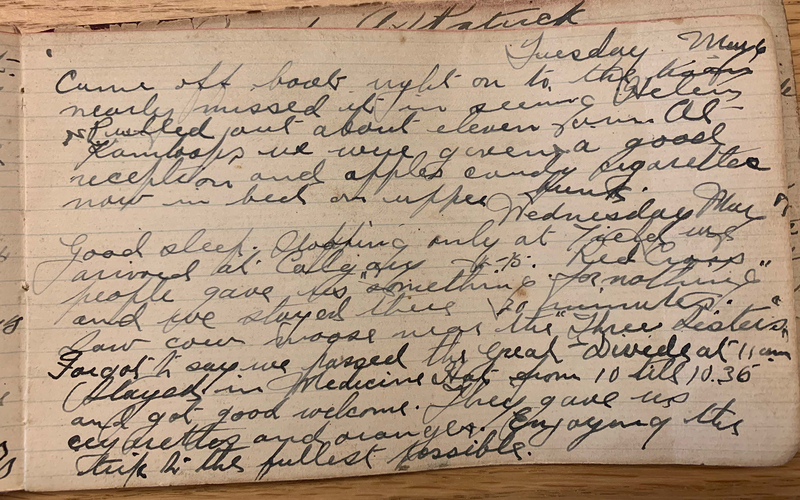 Kilpatrick
Tuesday Mar 6
Came off boat right on to the train
nearly missed it in seeing Helen
Pulled out about eleven a.m. At
Kamloops we were given a good
reception and apples candy cigarettes
now in bed on upper bunk.
Wednesday Mar 7
Good sleep. Stopping only at Field we
arrived at Calgary 5-15. Red Cross
people gave us "something for nothing"
and we stayed there 20 minutes.
Saw cow moose near the "Three Sisters"
Forgot to say we passed the Great Divide at 11 am
Stayed in Medicine Hat from 10 till 10.35
and got good welcome. They gave us
cigarettes and oranges. Enjoying the
trip to the fullest possible.